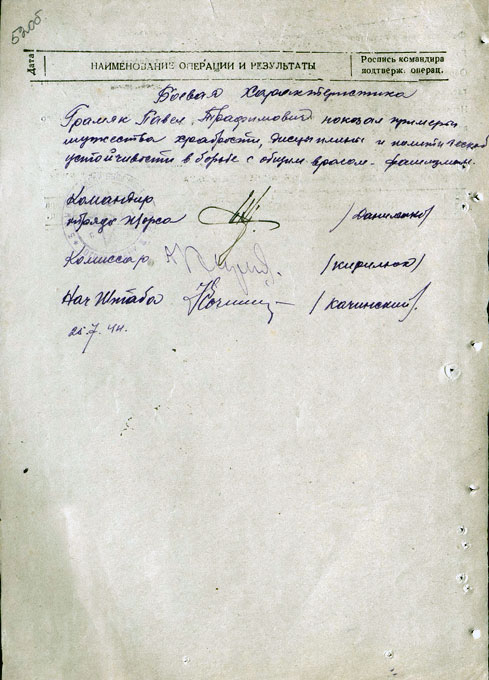 5206
Дата
НАИМЕНОВАНИЕ ОПЕРАЦИИ И РЕЗУЛЬТАТЫ
Роспись командира
подтверж. операц.
Боевая Характеристика
Грамяк Павел Трафимович показал примеры
мужества храбрости, дисциплины и политической
устойчивости в борьбе с общим врагом - фашизмом.
Командир
отряда Щорса /Даниленко/
Комиссар /Кирилюк/
Нач Штаба /Качинский/.
25.7.44.